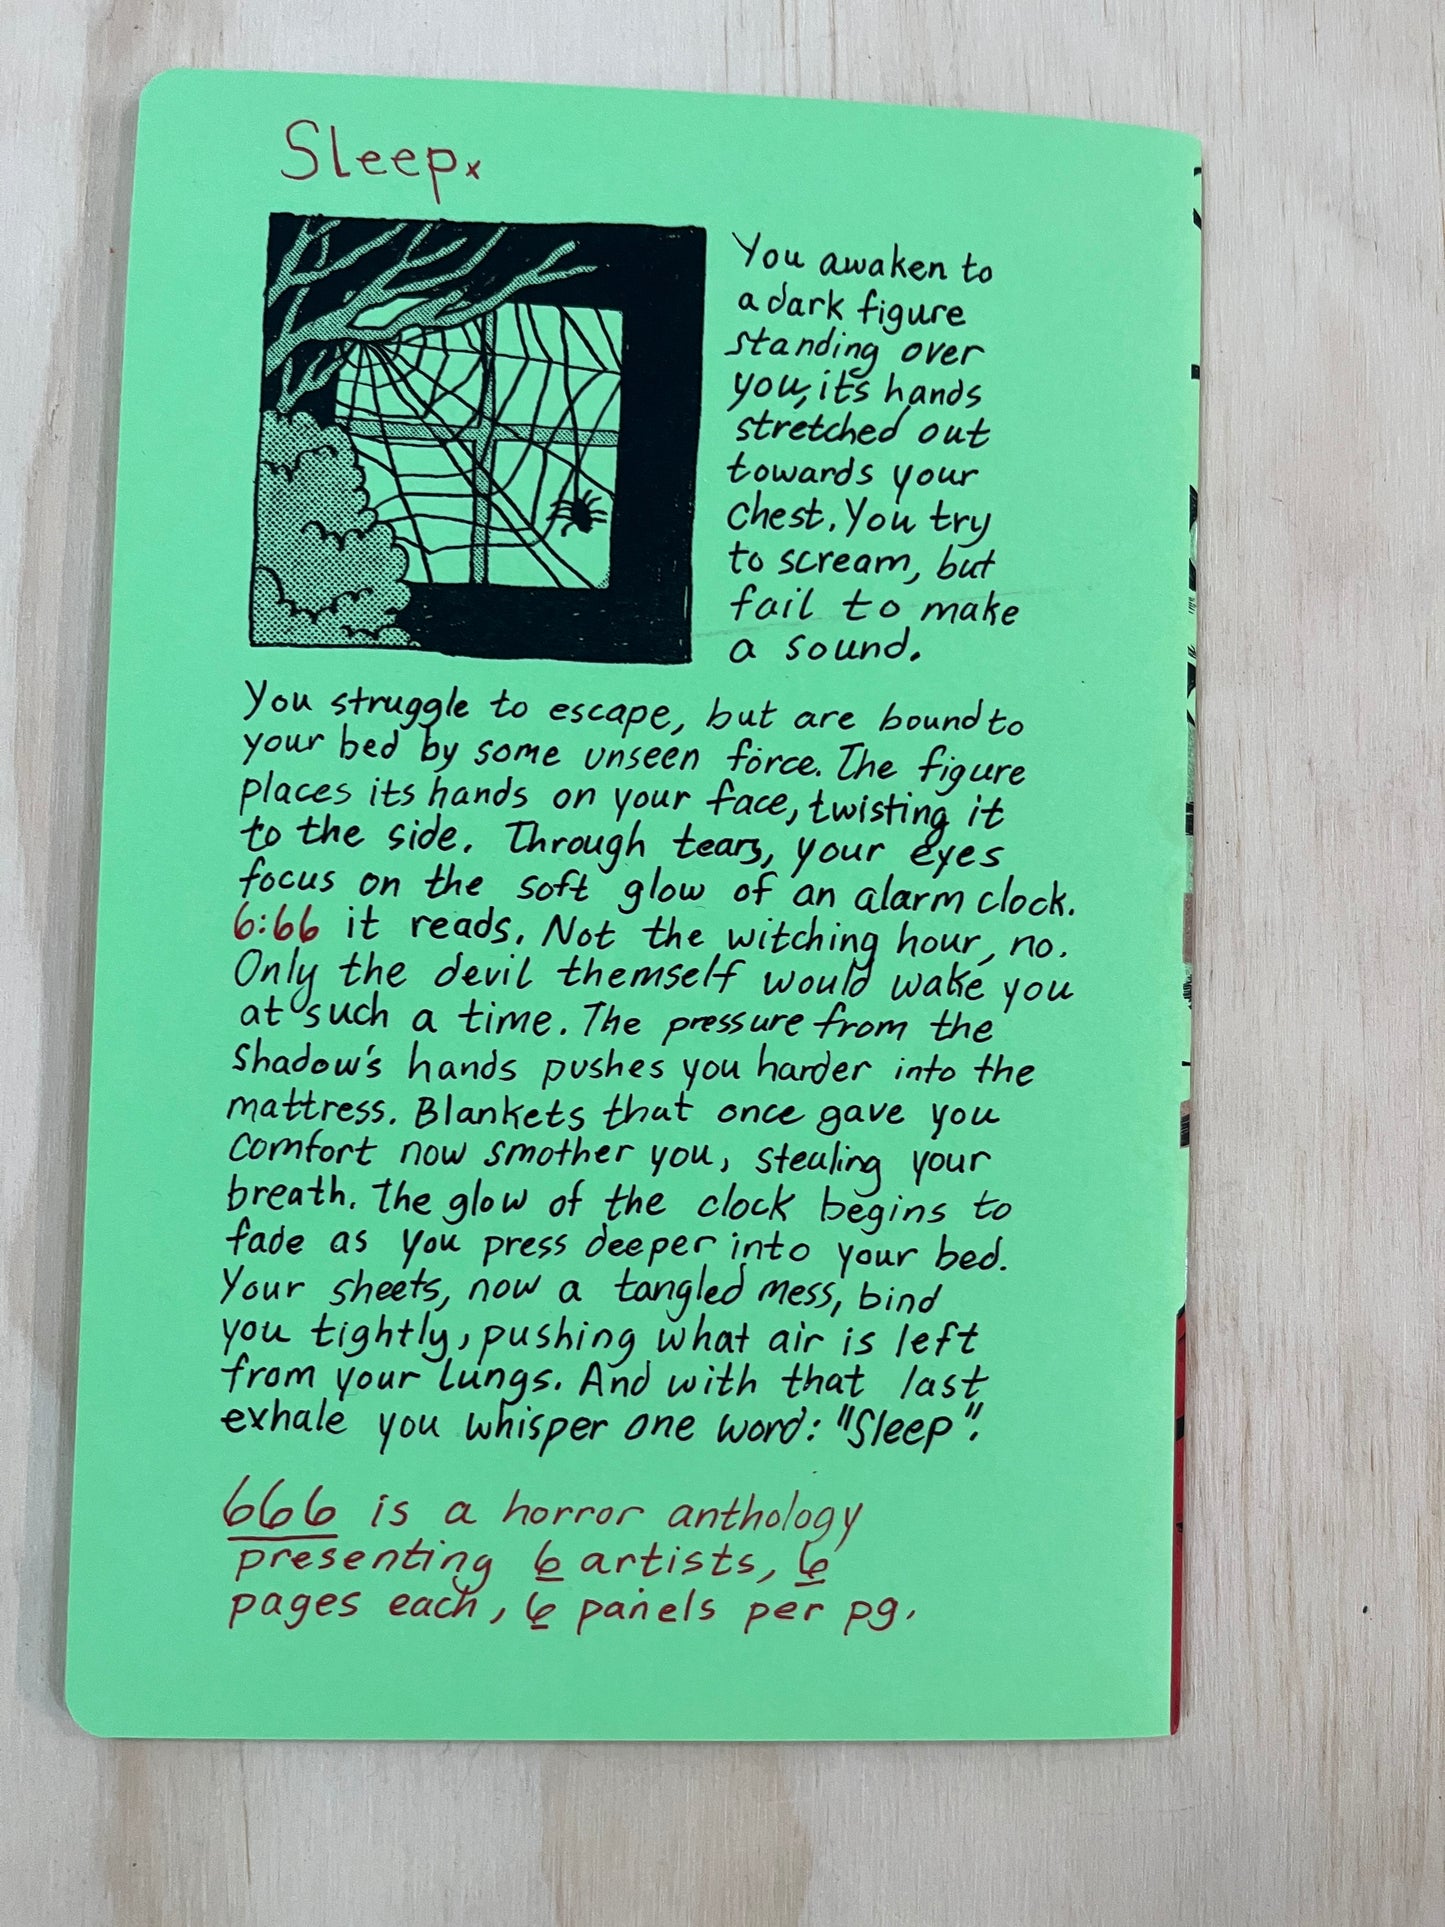 Sleepx
You awaken to
a dark figure
standing over
you, it's hands
stretched out
towards your
chest. You try
to scream, but
fail to make
a sound.
You struggle to escape, but are bound to
your bed by some unseen force. The figure
places its hands on your face, twisting it
to the side. Through tears, your eyes
focus on the soft glow of an alarm clock.
6:66 it reads. Not the witching hour, no.
Only the devil themself would wake you
at such a time. The pressure from the
shadow's hands pushes you harder into the
mattress. Blankets that once gave you
comfort now smother you, stealing your
breath. The glow of the clock begins to
fade as you press deeper into your bed.
Your sheets, now a tangled mess, bind
you tightly, pushing what air is left
from your lungs. And with that last
exhale you whisper one word: "Sleep".
666 is a horror anthology
presenting 6 artists, 6
pages each, 6 panels per pg.